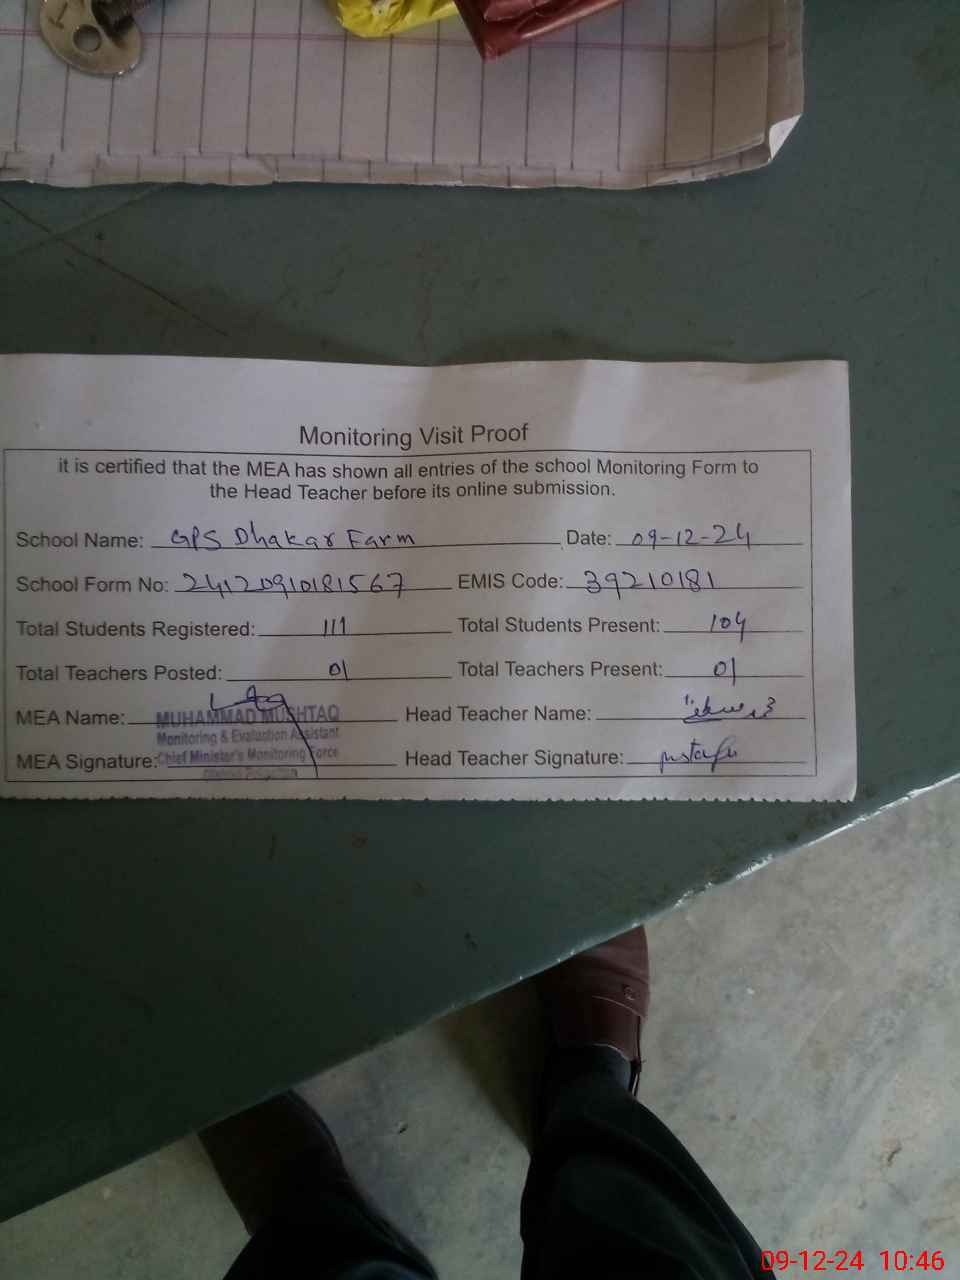 Monitoring Visit Proof
it is certified that the MEA has shown all entries of the school Monitoring Form to
the Head Teacher before its online submission.
School Name: GPS Dhakar Farm Date: 09-12-24
School Form No: 24120910181567 EMIS Code: 39210181
Total Students Registered: 111 Total Students Present: 104
Total Teachers Posted: 01 Total Teachers Present: 01
MEA Name: MUHAMMAD MUSHTAQ Head Teacher Name:
Monitoring & Evaluation Assistant
MEA Signature: Chief Minister's Monitoring Force Head Teacher Signature:
09-12-24 10:46